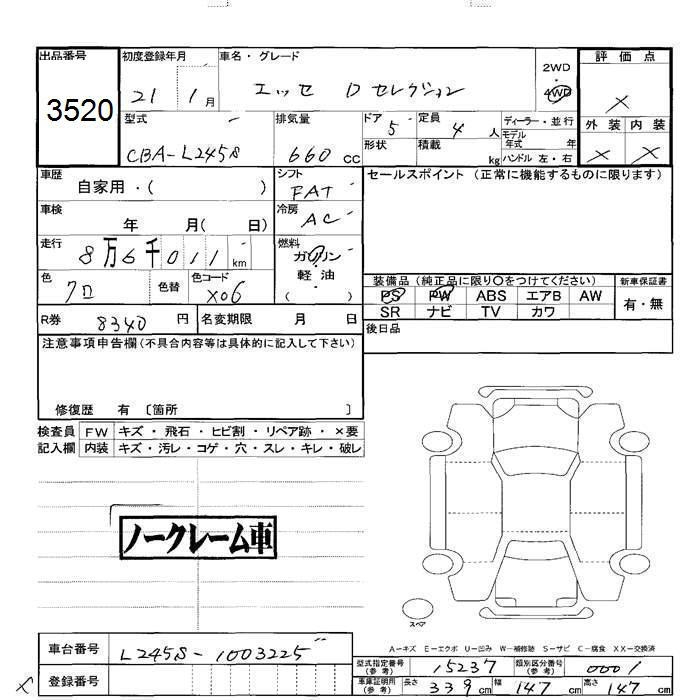 出品番号
3520
初度登録年月
21 1月
車名・グレード
エッセ D セレクション
2WD
・
4WD
評価点
×
外装 内装
× ×
型式
CBA-L245S
排気量
660 cc
ドア 5
形状
定員 4 人
積載 kg
ディーラー・並行
モデル年式 年
ハンドル 左・右
車歴
自家用・( )
シフト
FAT
セールスポイント (正常に機能するものに限ります)
車検
年 月( 日)
冷房
AC
走行
8万6千011km
燃料
ガソリン
・
軽油
( )
色
クロ
色替
色コード
X06
装備品(純正品に限り○をつけてください)
PS PW ABS エアB AW
SR ナビ TV カワ
新車保証書
有・無
R券 8340 円
名変期限 月 日
後日品
注意事項申告欄(不具合内容等は具体的に記入して下さい)
修復歴 有 〔箇所 〕
検査員記入欄
FW キズ・飛石・ヒビ割・リペア跡・×要
内装 キズ・汚レ・コゲ・穴・スレ・キレ・破レ
ノークレーム車
スペア
A−キズ E−エクボ U−凹み W−補修跡 S−サビ C−腐食 XX−交換済
車台番号
L245S-1003225
×
登録番号
型式指定番号(参考) 15237
類別区分番号(参考) 0001
車庫証明用(参考) 長さ 339cm 幅 147cm 高さ 147cm